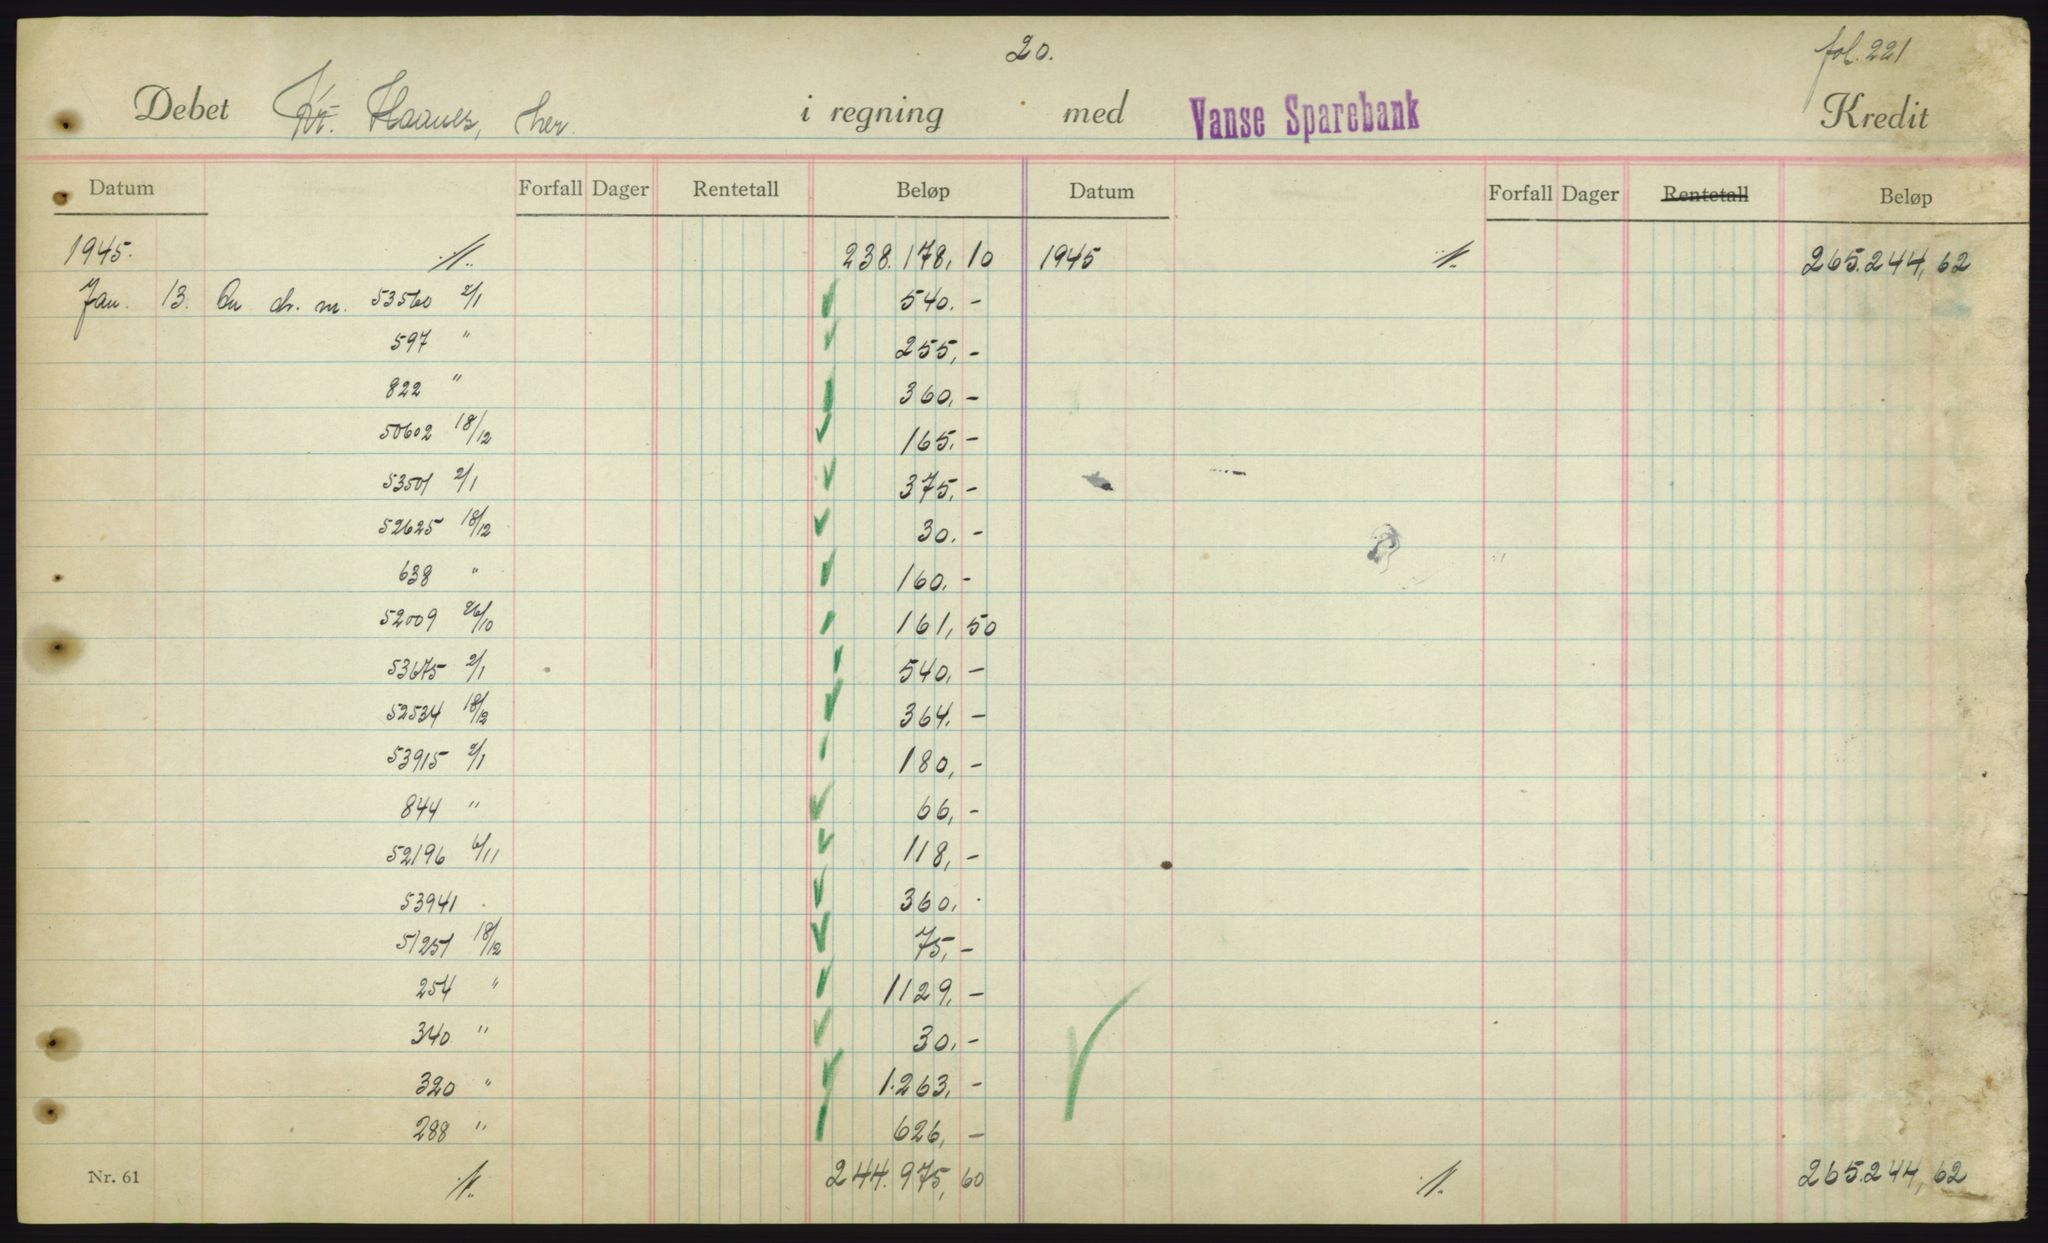 20.
fol. 221
Debet Kr. Haanes, her. i regning med Vanse Sparebank Kredit
Datum Forfall Dager Rentetall Beløp Datum Forfall Dager Rentetall Beløp
1945. 238.178,10 1945 265.244,62
Jan. 13. An dr. m. 53560 2/1 540.-
597 " 255,-
822 " 360,-
50602 18/12 165.-
53501 2/1 375,-
52625 18/12 30.-
638 " 160.-
52009 26/10 161,50
53675 2/1 540,-
52534 18/12 364.-
53915 2/1 180,-
844 " 66,-
52196 6/11 118,-
53941 360,-
51251 18/12 75,-
254 " 1129,-
340 " 30,-
320 " 1.263,-
288 " 626,-
Nr. 61 244.975,60 265.244,62